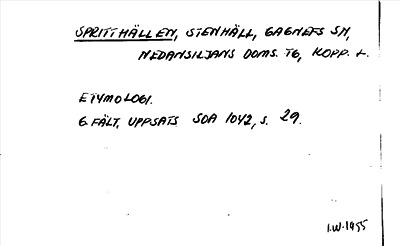 SPRITTHÄLLEN, STENHÄLL, GAGNEFS SN,
NEDANSILJANS DOMS. TG, KOPP. L.
ETYMOLOGI.
G. FÄLT, UPPSATS SOA 1042, S. 29.
I.W. 1955